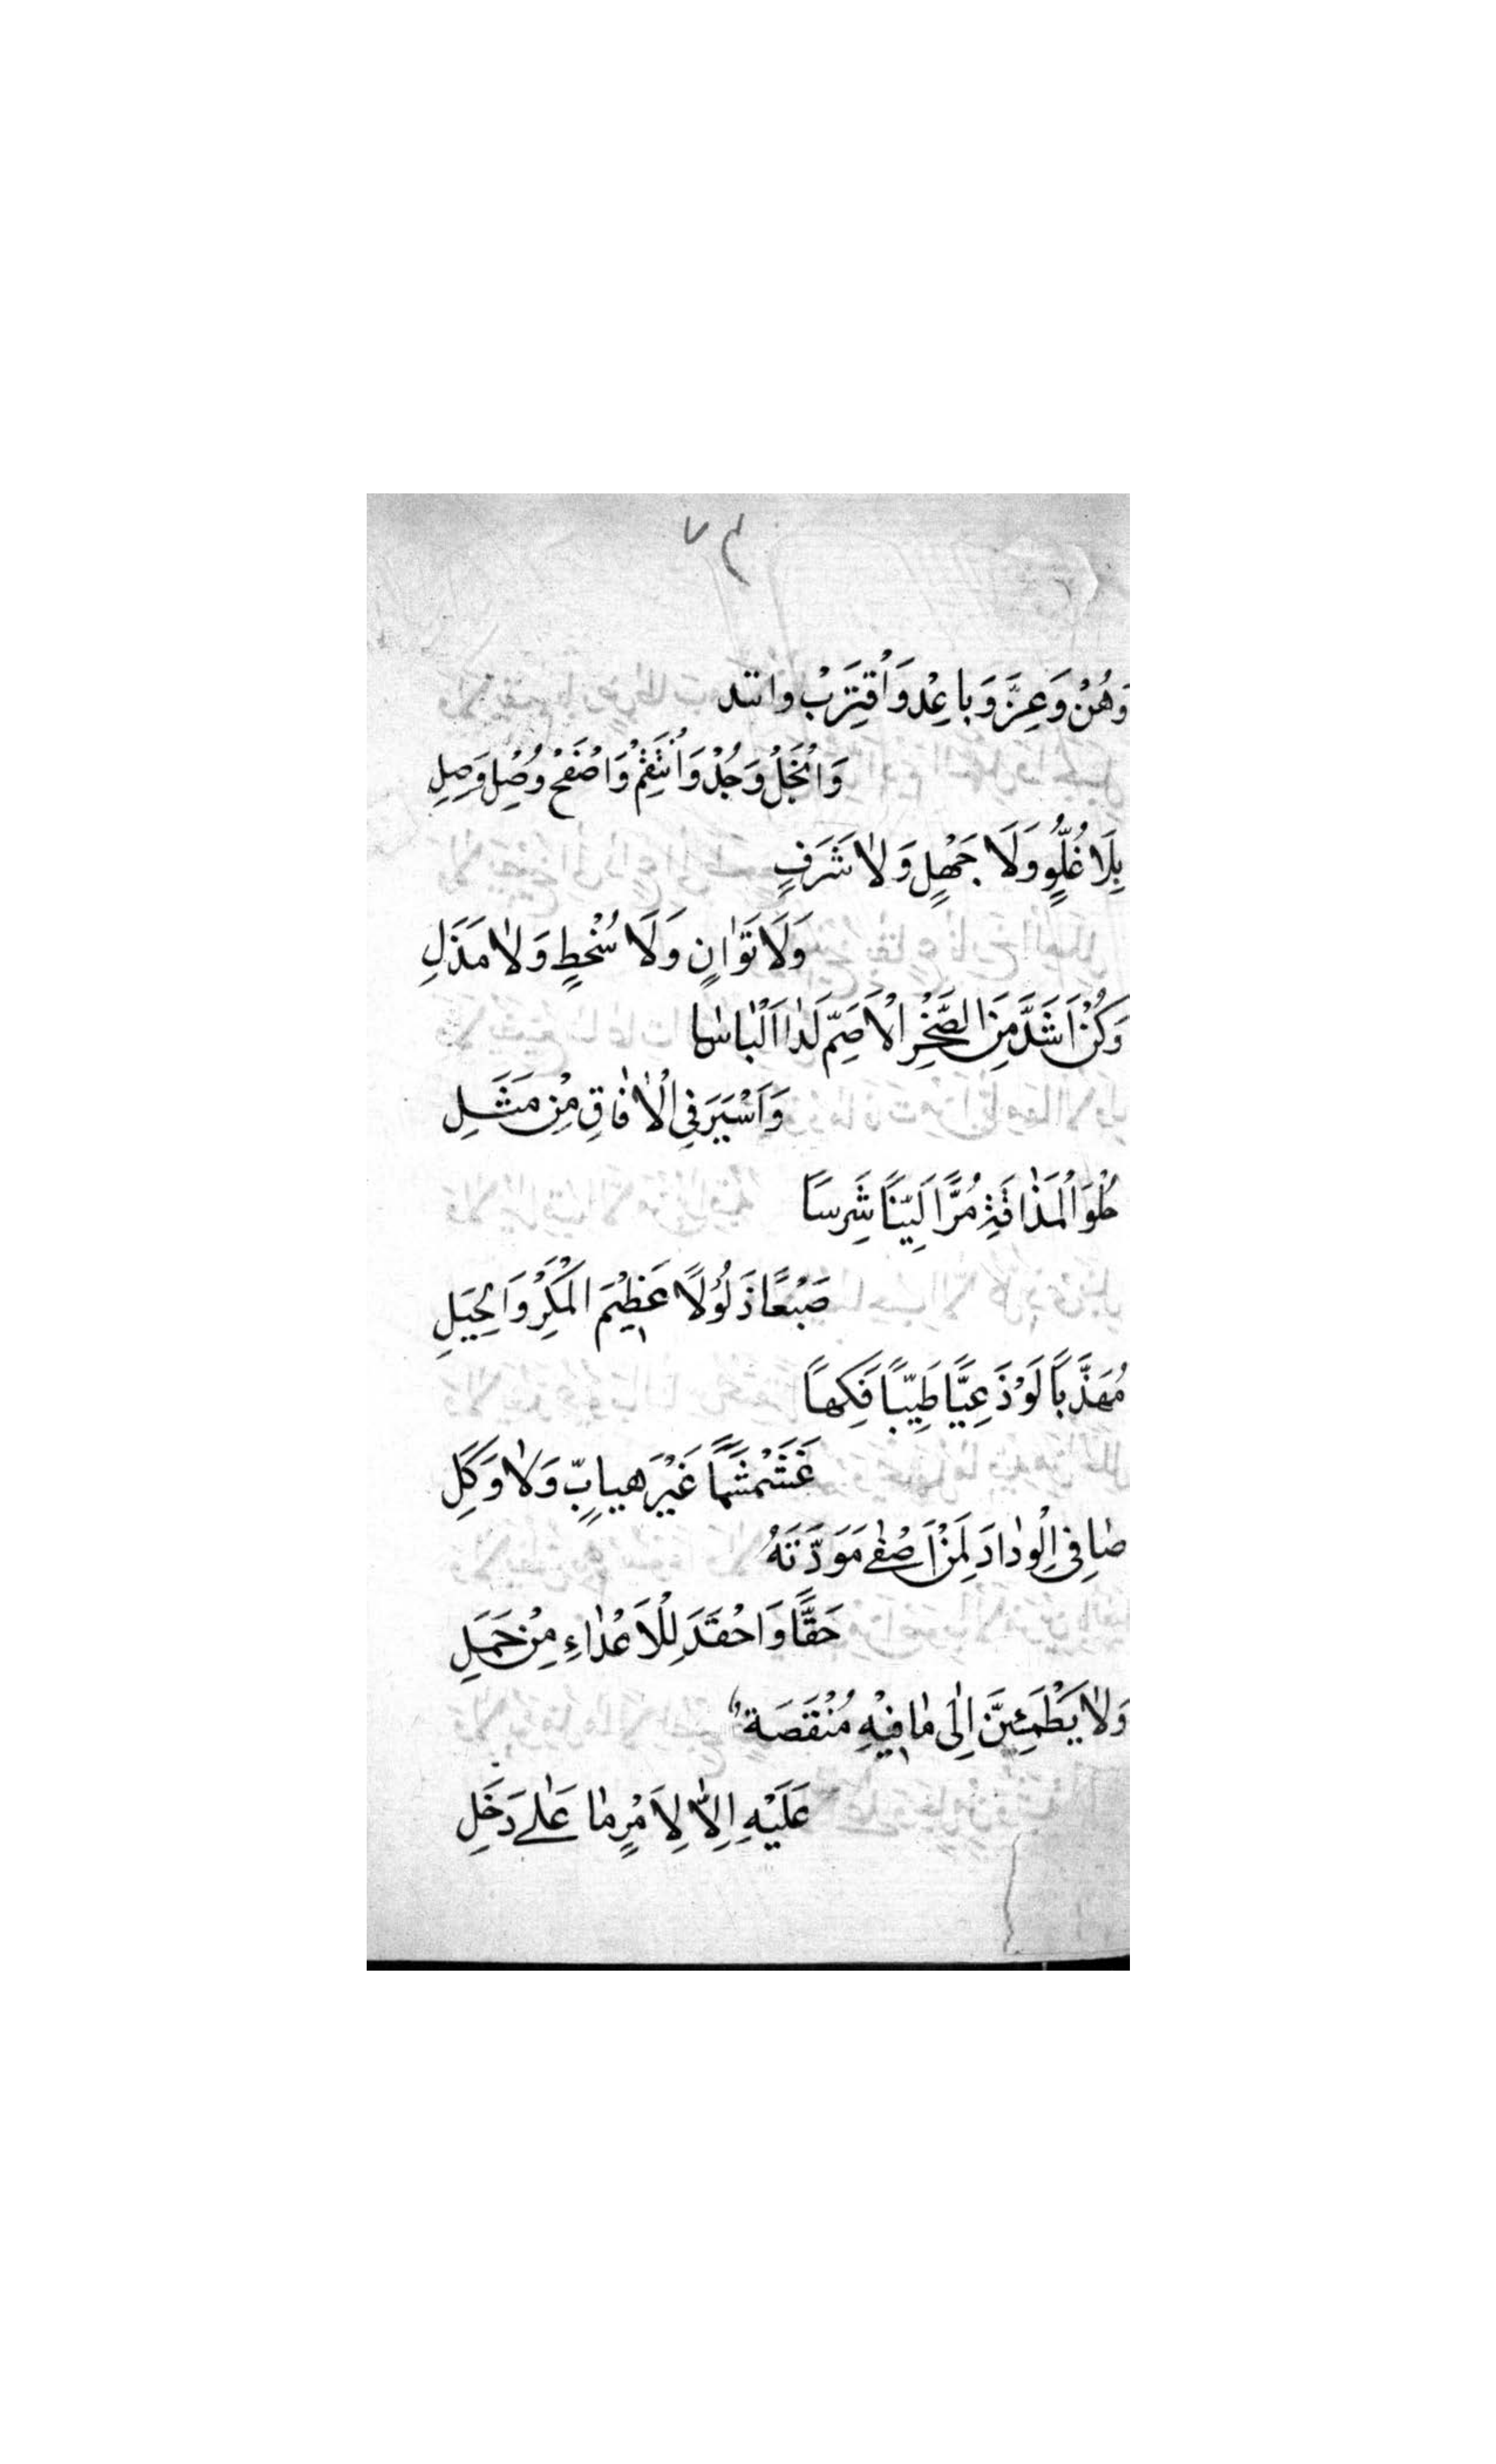 وَهُنْ وَعِزَّ وَبَاعِدْ وَاُقْتَرِبْ واتئد
وَابْخَلْ وَجُدْ وَاُنْتَقِمْ وَاصْفَحْ وُصْلِ وَصِلِ
بِلَا غُلُّوٍ وَلَا جَهْلٍ وَلَا شَرَفٍ
وَلَا تَوَانٍ وَلَا سُخْطٍ وَلَا مَذَلِ
وَكُنْ اَشَدَّ مِنَ الصَّخْرِ اْلاَصَمِّ لَدَا اَلْبَاسَا
وَاَسْيَرَ فِي اْلاٰفَاقِ مِنْ مَثَلِ
حُلْوَ اَلْمَذَاقَةِ مُرًّا لَيِّنًا شَرِسًا
صَبْعًا ذَلُوْلًا عَظِيْمَ الْمَكْرِ وَالْحِيَلِ
مُهَذَّبًا لَوْذَعِيًّا طَيِّبًا فَكِهًا
غَشَمْشَمًا غَيْرَ هيابٍّ وَلَا وَكَلِ
صَافِي اِلْوِدَادَ لِمَنْ اَصْفٰے مَوَدَّتَهُ
حَقًّا وَاَحْقَدَ لِلْاَعْدَاءِ مِنْ جَمَلِ
وَلَا يَطْمَئِنَّ اِلٰى مَا فِيْهِ مُنْقَصَةٌ
عَلَيْهِ اِلاَّ لِاَمْرٍ مَا عَلٰے دَخَلِ